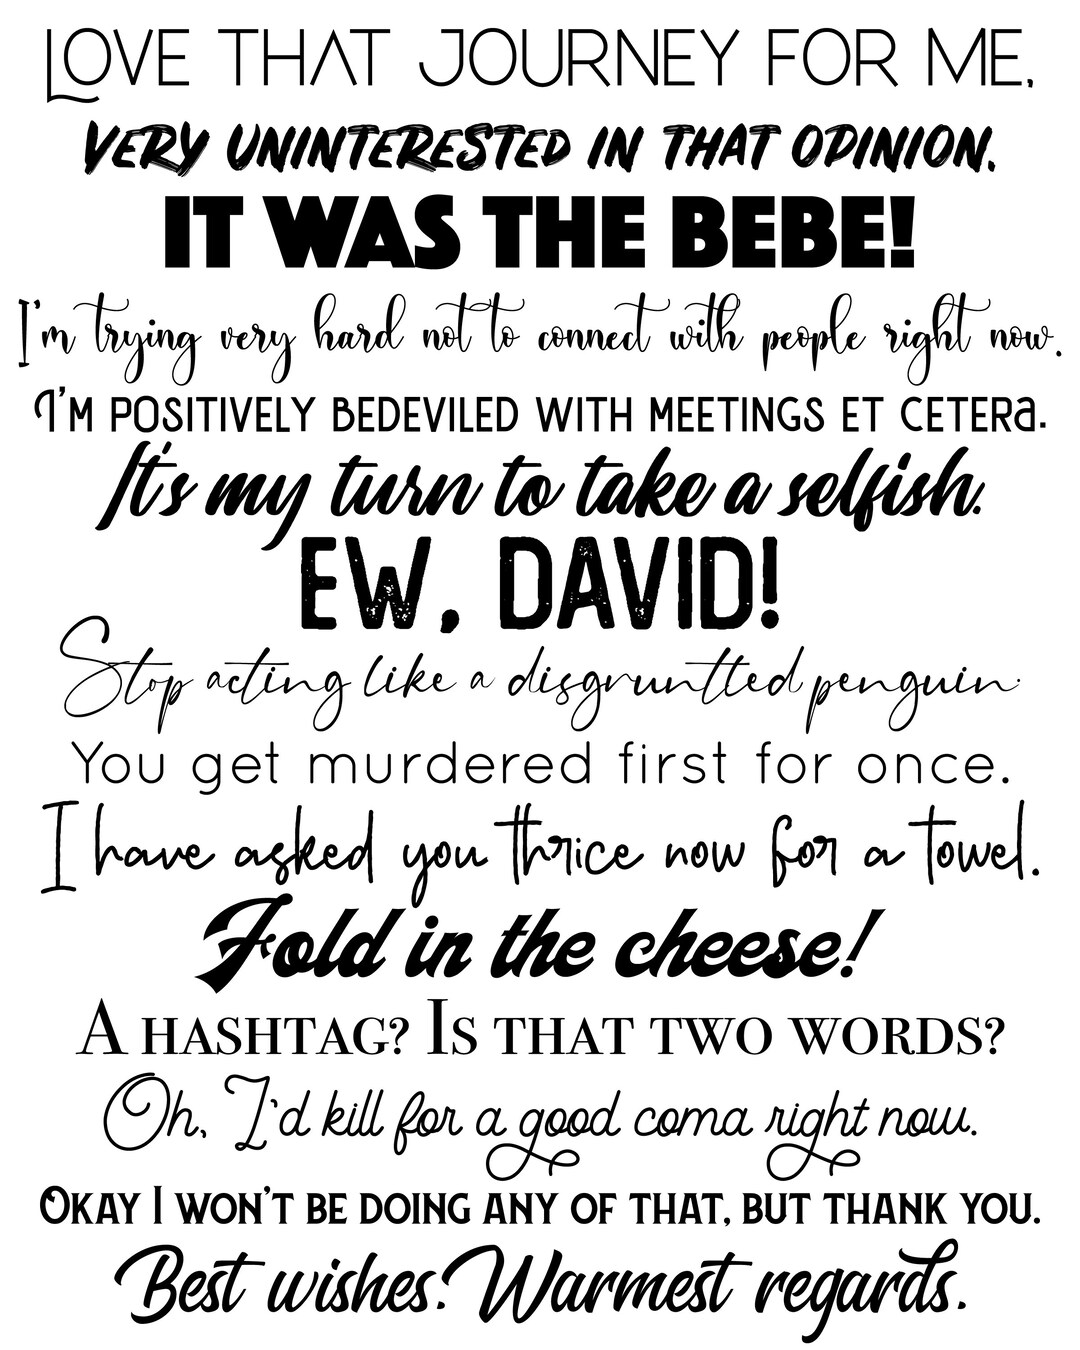 LOVE THAT JOURNEY FOR ME.
VERY UNINTERESTED IN THAT OPINION.
IT WAS THE BEBE!
I'm trying very hard not to connect with people right now.
I'M POSITIVELY BEDEVILED WITH MEETINGS ET CETERA.
It's my turn to take a selfish.
EW, DAVID!
Stop acting like a disgruntled penguin.
You get murdered first for once.
I have asked you thrice now for a towel.
Fold in the cheese!
A HASHTAG? IS THAT TWO WORDS?
Oh, I'd kill for a good coma right now.
OKAY I WON'T BE DOING ANY OF THAT, BUT THANK YOU.
Best wishes. Warmest regards.